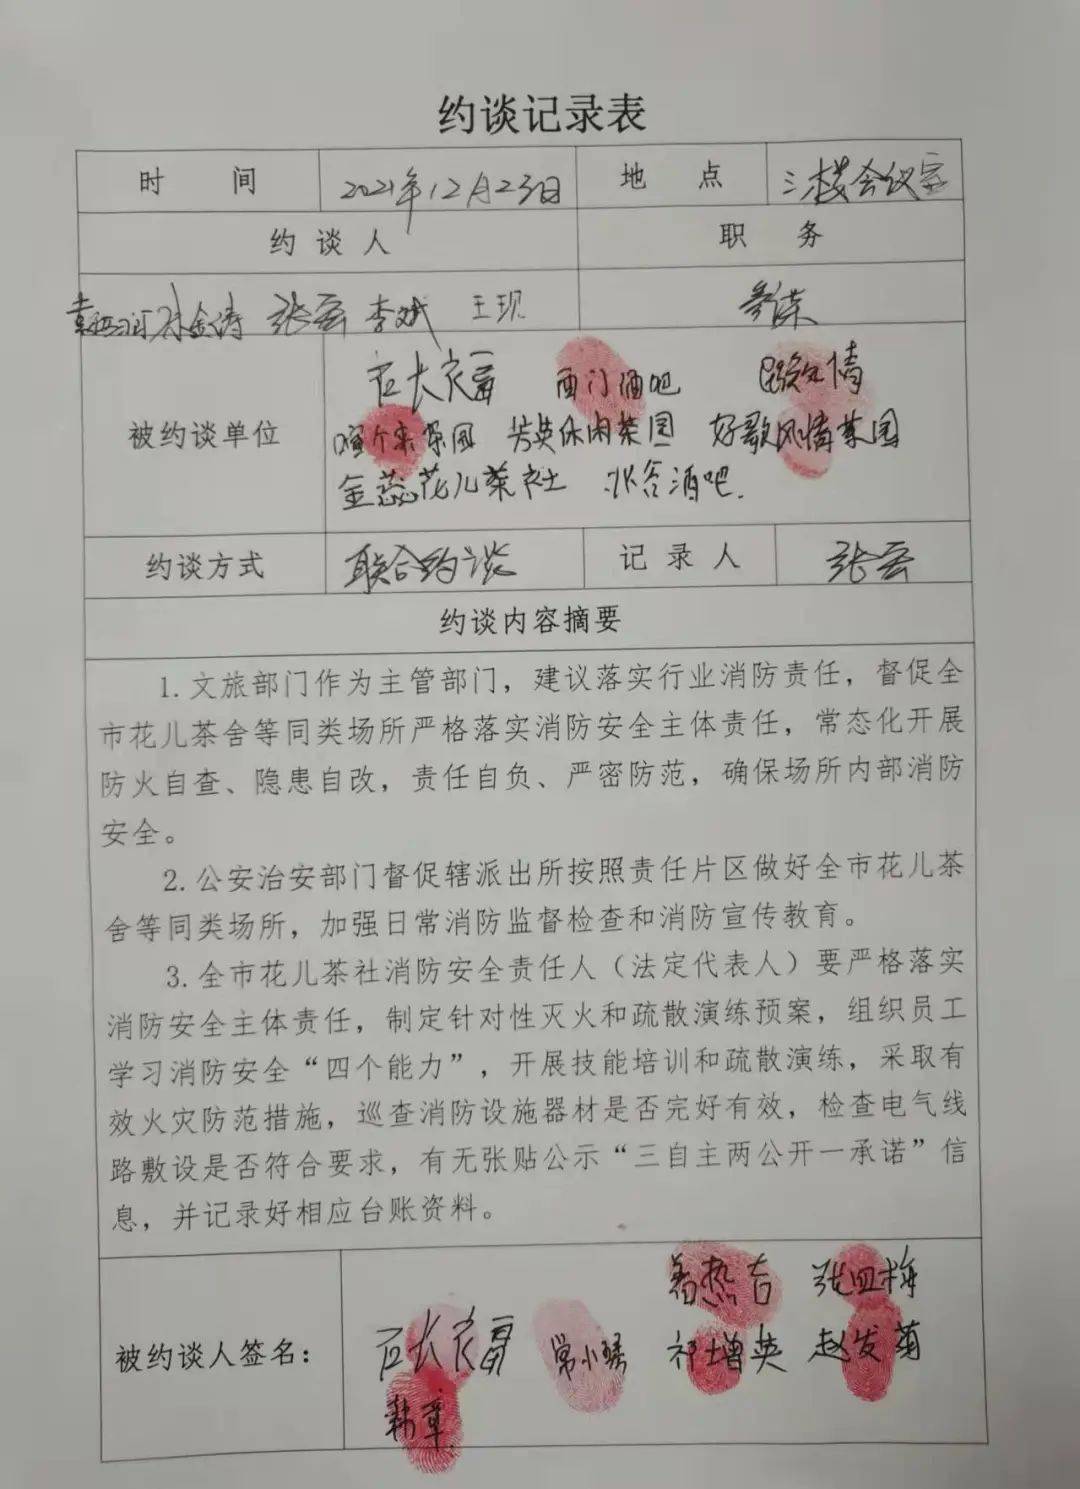 约谈记录表
时 间 2021年12月23日 地 点 三楼会议室
约谈人 职 务
孙金涛 张磊 李斌 王现
被约谈单位
石长富 西门酒吧 情
芳英休闲茶园 好歌风情茶园
金蕊花儿茶社 酒吧.
约谈方式 联合约谈 记录人 张磊
约谈内容摘要
1.文旅部门作为主管部门，建议落实行业消防责任，督促全
市花儿茶舍等同类场所严格落实消防安全主体责任，常态化开展
防火自查、隐患自改，责任自负、严密防范，确保场所内部消防
安全。
2.公安治安部门督促辖派出所按照责任片区做好全市花儿茶
舍等同类场所，加强日常消防监督检查和消防宣传教育。
3.全市花儿茶社消防安全责任人（法定代表人）要严格落实
消防安全主体责任，制定针对性灭火和疏散演练预案，组织员工
学习消防安全“四个能力”，开展技能培训和疏散演练，采取有
效火灾防范措施，巡查消防设施器材是否完好有效，检查电气线
路敷设是否符合要求，有无张贴公示“三自主两公开一承诺”信
息，并记录好相应台账资料。
张四梅
被约谈人签名： 石长富 常小琴 祁增英 赵发菊
韩章